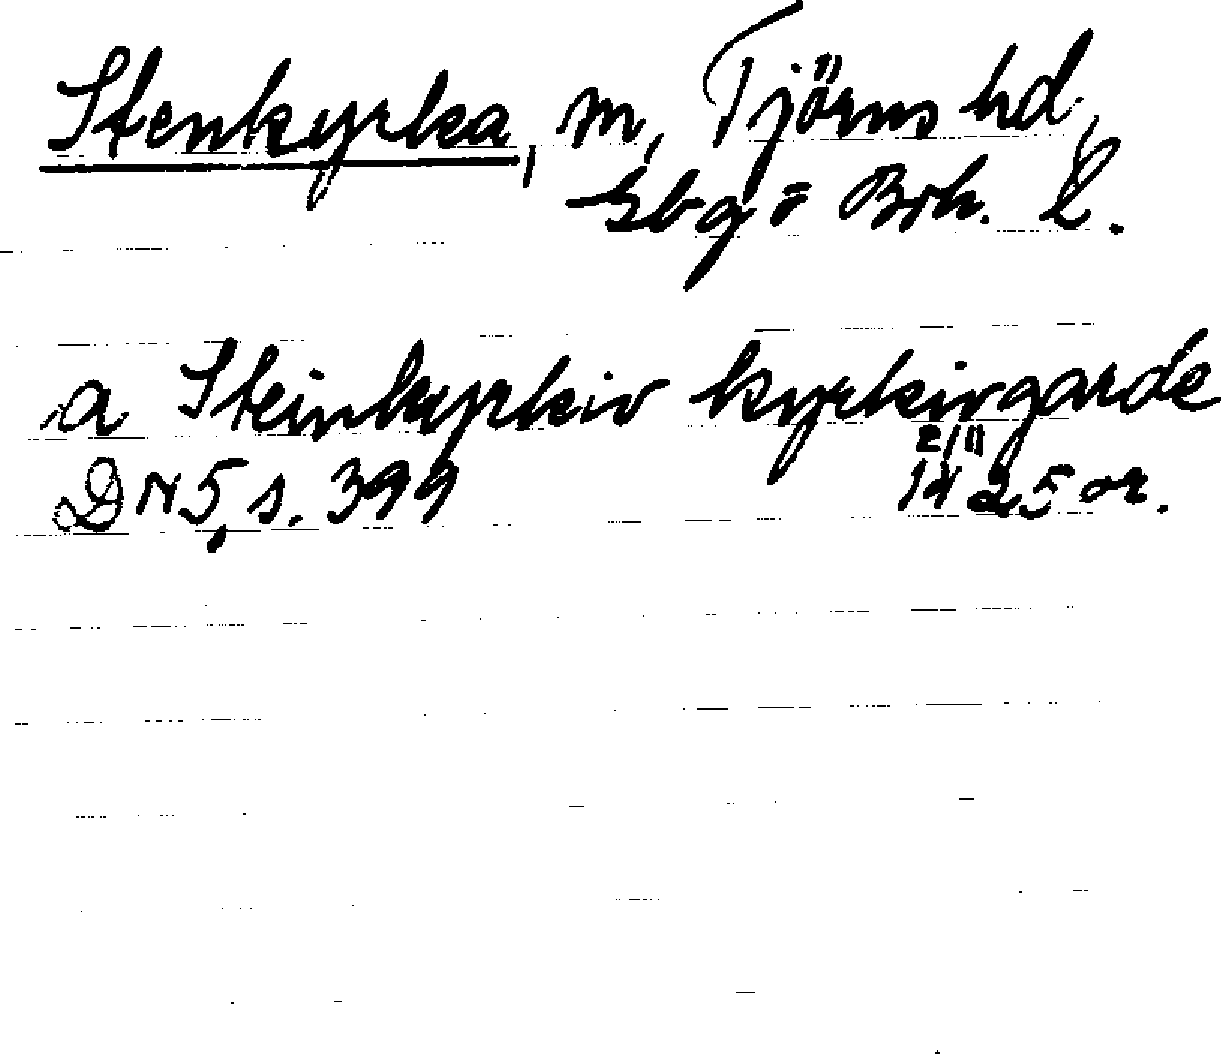 Stenkyrka, sn, Tjörns hd,
Gbg o Boh. l.
a Steinkyrkiv kyrkivgarde
2/11
DN 5, s. 399 1425 or.